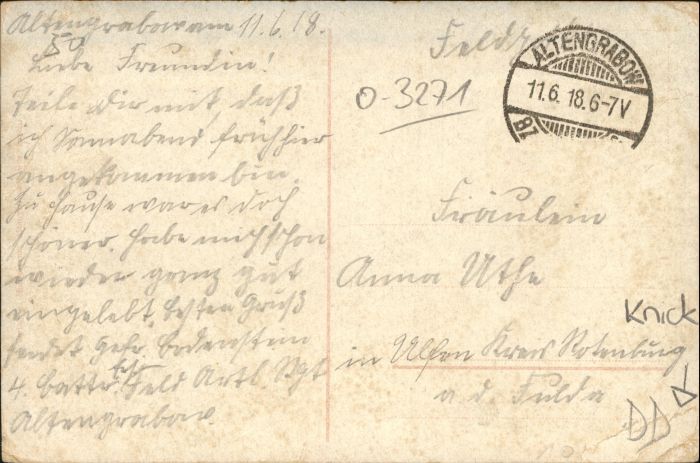 Altengrabow am 11.6.18.
Liebe Freundin!
Teile Dir mit, daß
ich Sonnabend früh hier
angekommen bin.
Zu Hause war es doch
schöner. Habe mich schon
wieder ganz gut
eingelebt. Besten Gruß
sendet Gefr. Bodenstein
4. Battr. Feld Artl. Rgt
Altengrabow.
O-3271
ALTENGRABOW
11.6.18.6-7V
Fräulein
Anna Uthe
Knick
in Ulfen Kreis Rotenburg
a. d. Fulda